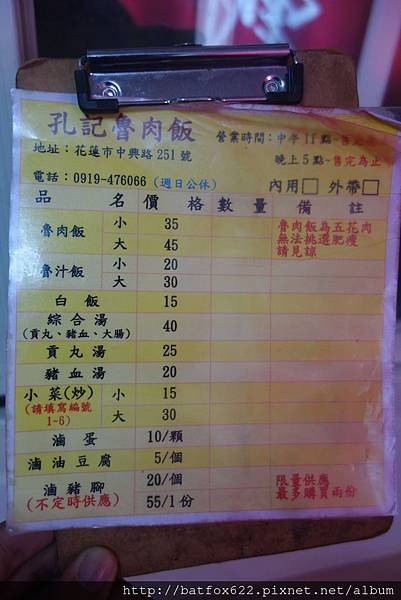 孔記魯肉飯
營業時間：中午11點~售完為止
地址：花蓮市中興路251號
晚上5點~售完為止
電話：0919-476066（週日公休）
內用□ 外帶□
品名 價格 數量 備註
魯肉飯 小 35
大 45
魯肉飯為五花肉
無法挑選肥瘦
請見諒
魯汁飯 小 20
大 30
白飯 15
綜合湯 40
(貢丸、豬血、大腸)
貢丸湯 25
豬血湯 20
小菜(炒) 小 15
(請填寫編號
1~6)
大 30
滷蛋 10/顆
滷油豆腐 5/個
滷豬腳 20/個
(不定時供應) 55/1份
限量供應
最多購買兩份
http://batfox622.pixnet.net/album